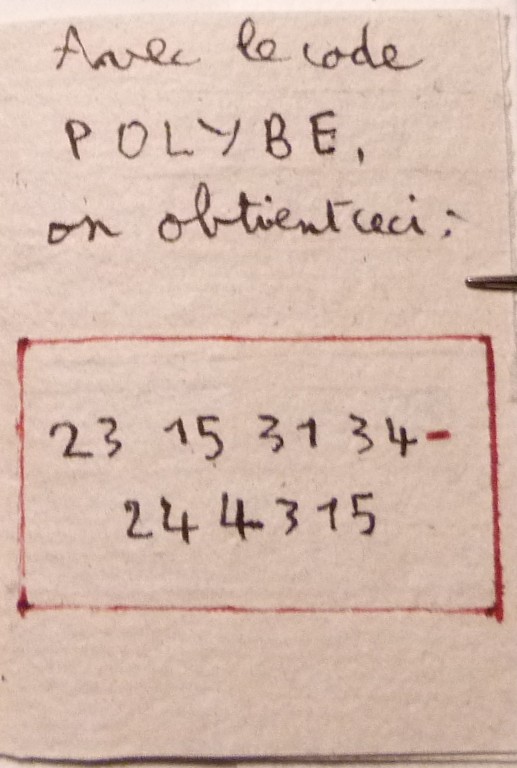 Avec le code
POLYBE,
on obtient ceci :
23 15 31 34-
24 43 15